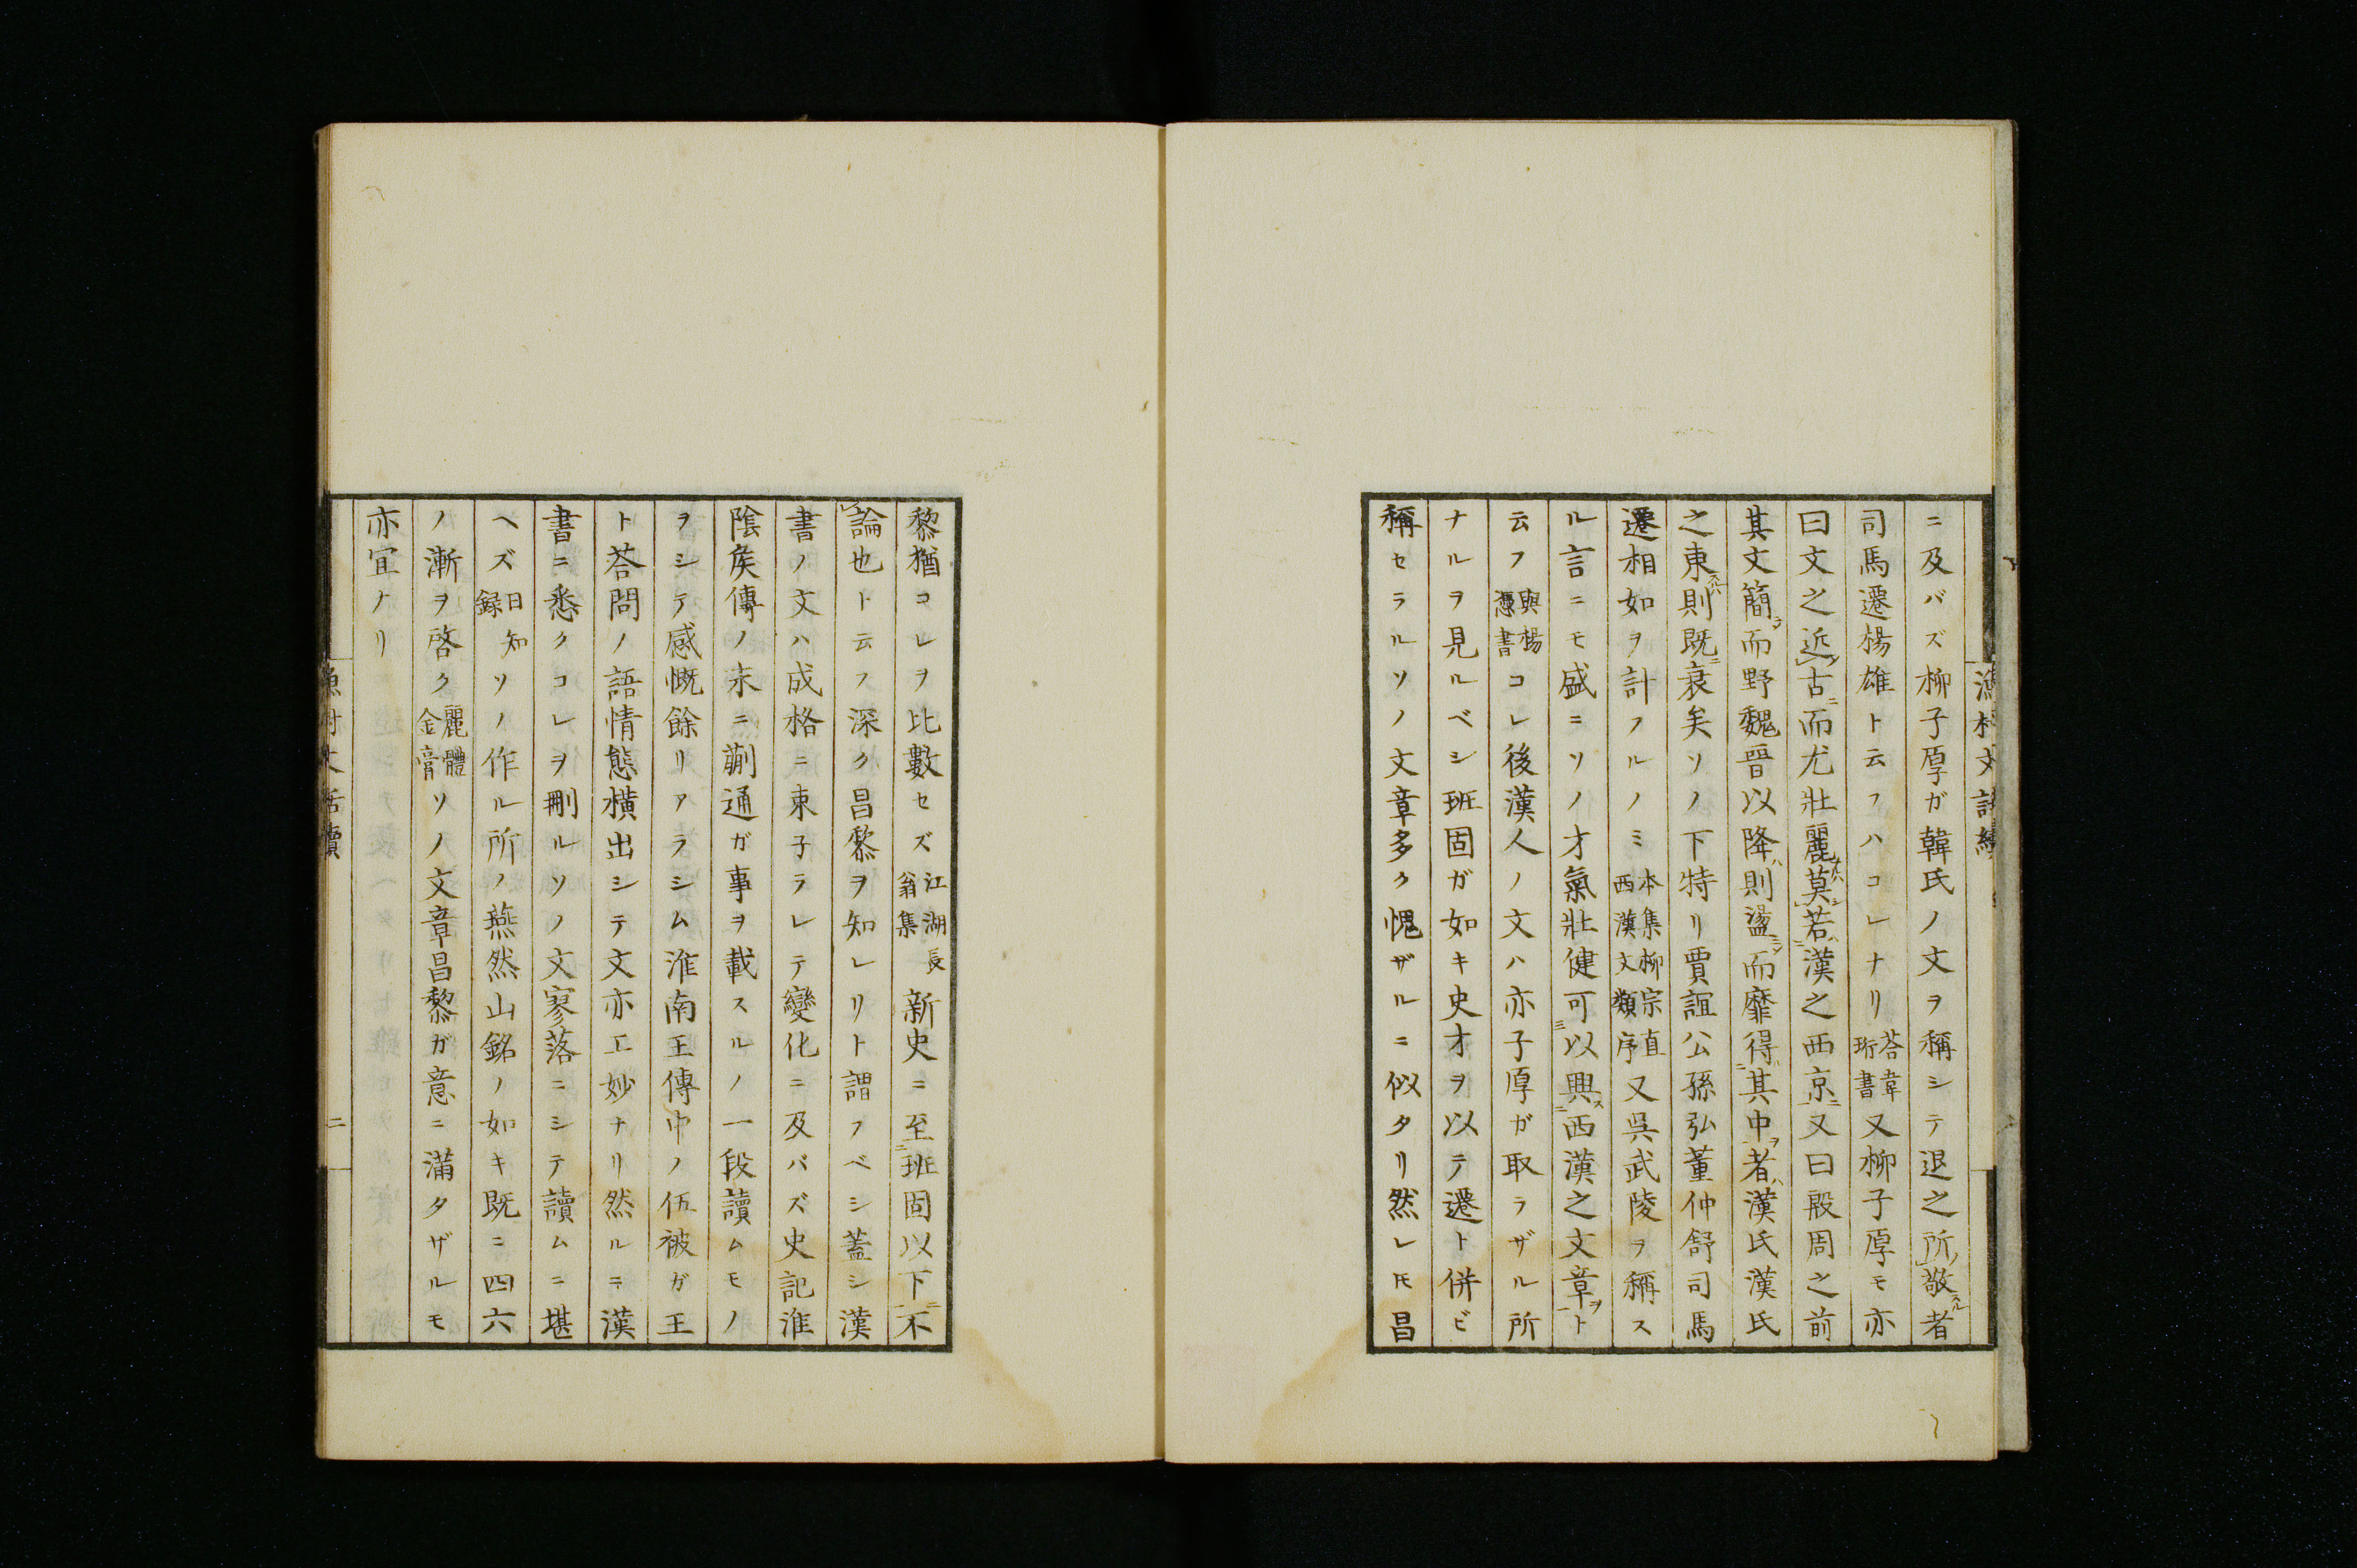 漁村文話續
ニ及バズ柳子厚ガ韓氏ノ文ヲ稱シテ退之所敬者
司馬遷楊雄ト云フハコレナリ答韋珩書又柳子厚モ亦
曰文之近古而尤壯麗莫若漢之西京又曰殷周之前
其文簡而野魏晉以降則盪而靡得其中者漢氏漢氏
之東則既衰矣ソノ下特リ賈誼公孫弘董仲舒司馬
遷相如ヲ計フルノミ本集柳宗直西漢文類序又呉武陵ヲ稱ス
ル言ニモ盛ニソノ才氣壯健可以興西漢之文章ト
云フ與楊憑書コレ後漢人ノ文ハ亦子厚ガ取ラザル所
ナルヲ見ルベシ班固ガ如キ史才ヲ以テ遷ト併ビ
稱セラルソノ文章多ク愧ザルニ似タリ然レ𪜈昌
黎猶コレヲ比數セズ江湖長翁集新史ニ至班固以下不
論也ト云フ深ク昌黎ヲ知レリト謂フベシ蓋シ漢
書ノ文ハ成格ニ束子ラレテ變化ニ及バズ史記淮
陰矦傳ノ末ニ蒯通ガ事ヲ載スルノ一段讀ムモノ
ヲシテ感慨餘リアラシム淮南王傳中ノ伍被ガ王
ト荅問ノ語情態橫出シテ文亦工妙ナリ然ルニ漢
書ニ悉クコレヲ刪ルソノ文寥落ニシテ讀ムニ堪
ヘズ日知録ソノ作ル所ノ燕然山銘ノ如キ既ニ四六
ノ漸ヲ啓ク麗體金膏ソノ文章昌黎ガ意ニ滿タザルモ
亦宜ナリ
漁村文話續
二